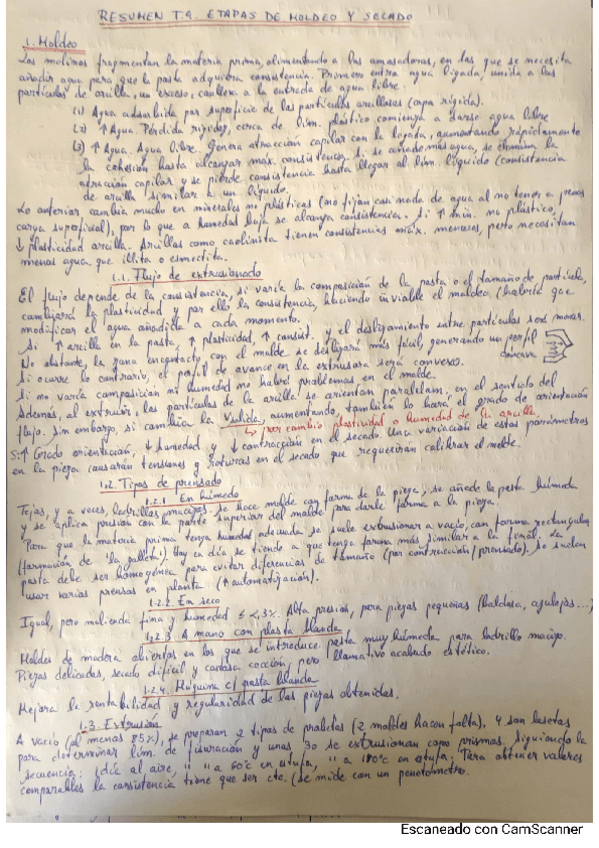 RESUMEN T.9. ETAPAS DE MOLDEO Y SECADO
1. Moldeo
Los molinos fragmentan la materia prima, alimentando a las amasadoras, en las que se necesita
añadir agua para que la pasta adquiera consistencia. Primero entra agua ligada, unida a las
partículas de arcilla, un exceso, conlleva a la entrada de agua libre.
(1) Agua adsorbida por superficie de las partículas arcillosas (capa rígida).
(2) ↑ Agua. Pérdida rigidez, cerca de lím. plástico comienza a darse agua libre
(3) ↑ Agua. Agua libre. Genera atracción capilar con la ligada, aumentando rápidamente
la cohesión hasta alcanzar máx. consistencia. Si se añade más agua, se elimina la
atracción capilar y se pierde consistencia hasta llegar al lím. líquido (consistencia
de arcilla similar a un líquido.
Lo anterior cambia mucho en minerales no plásticos (no fijan casi nada de agua al no tener a penas
carga superficial), por lo que a humedad baja se alcanza consistencia. Si ↑ min. no plástico,
↓ plasticidad arcilla. Arcillas como caolinita tienen consistencias máx. menores, pero necesitan
menos agua que illita o esmectita.
1.1. Flujo de extrusionado
El flujo depende de la consistencia, si varía la composición de la pasta o el tamaño de partícula,
cambiará la plasticidad y por ello la consistencia, haciendo inviable el moldeo (habría que
modificar el agua añadida a cada momento.
Si ↑ arcilla en la pasta, ↑ plasticidad, ↑ consist. y el desligamiento entre partículas será menor.
No obstante, la zona encontacto con el molde se desligará más fácil, generando un perfil
cóncavo.
Si ocurre lo contrario, el perfil de avance en la extrusora será convexo.
Si no varía composición ni humedad no habrá problemas en el molde.
Además, al extruir, las partículas de la arcilla se orientan paralelam. en el sentido del
flujo. Sin embargo, si cambia la V salida, aumentando, también lo hará el grado de orientación
↳ por cambio plasticidad o humedad de la arcilla
Si ↑ Grado orientación, ↓ humedad y ↓ contracción en el secado. Una variación de estos parámetros
en la pieza causarán tensiones y roturas en el secado que requerirán calibrar el molde.
1.2. Tipos de prensado
1.2.1 En húmedo
Tejas, y a veces, ladrillos macizos. Se hace molde con forma de la pieza, se añade la pasta húmeda
y se aplica presión con la parte superior del molde para darle forma a la pieza.
Para que la materia prima tenga humedad adecuada se suele extrusionar a vacío, con forma rectangular
(formación de la galleta). Hoy en día se tiende a que tenga forma más similar a la final. La
pasta debe ser homogénea para evitar diferencias de tamaño (por contracción/prensado). Se suelen
usar varias prensas en planta (↑ automatización).
1.2.2. En seco
Igual, pero molienda fina y humedad Alta presión, para piezas pequeñas (baldosa, azulejos...)
1.2.3 A mano con plasta blanda
Moldes de madera abiertos en los que se introduce pasta muy húmeda para ladrillo macizo.
Piezas delicadas, secado difícil y costosa cocción, pero llamativo acabado estético.
1.2.4. Máquina c/ pasta blanda
Mejora la rentabilidad y regularidad de las piezas obtenidas.
1.3. Extrusión
A vacío (al menos 85%), se preparan 2 tipos de probetas (2 moldes hacen falta). 4 son
para determinar lím. de fisuración y unas 30 se extrusionan como prismas. Siguiendo la
secuencia: 1 día al aire, " " a 60°c en estufa, " " a 110°c en estufa. Para obtener valores
comparables la consistencia tiene que ser cte. (se mide con un penetómetro.
Escaneado con CamScanner